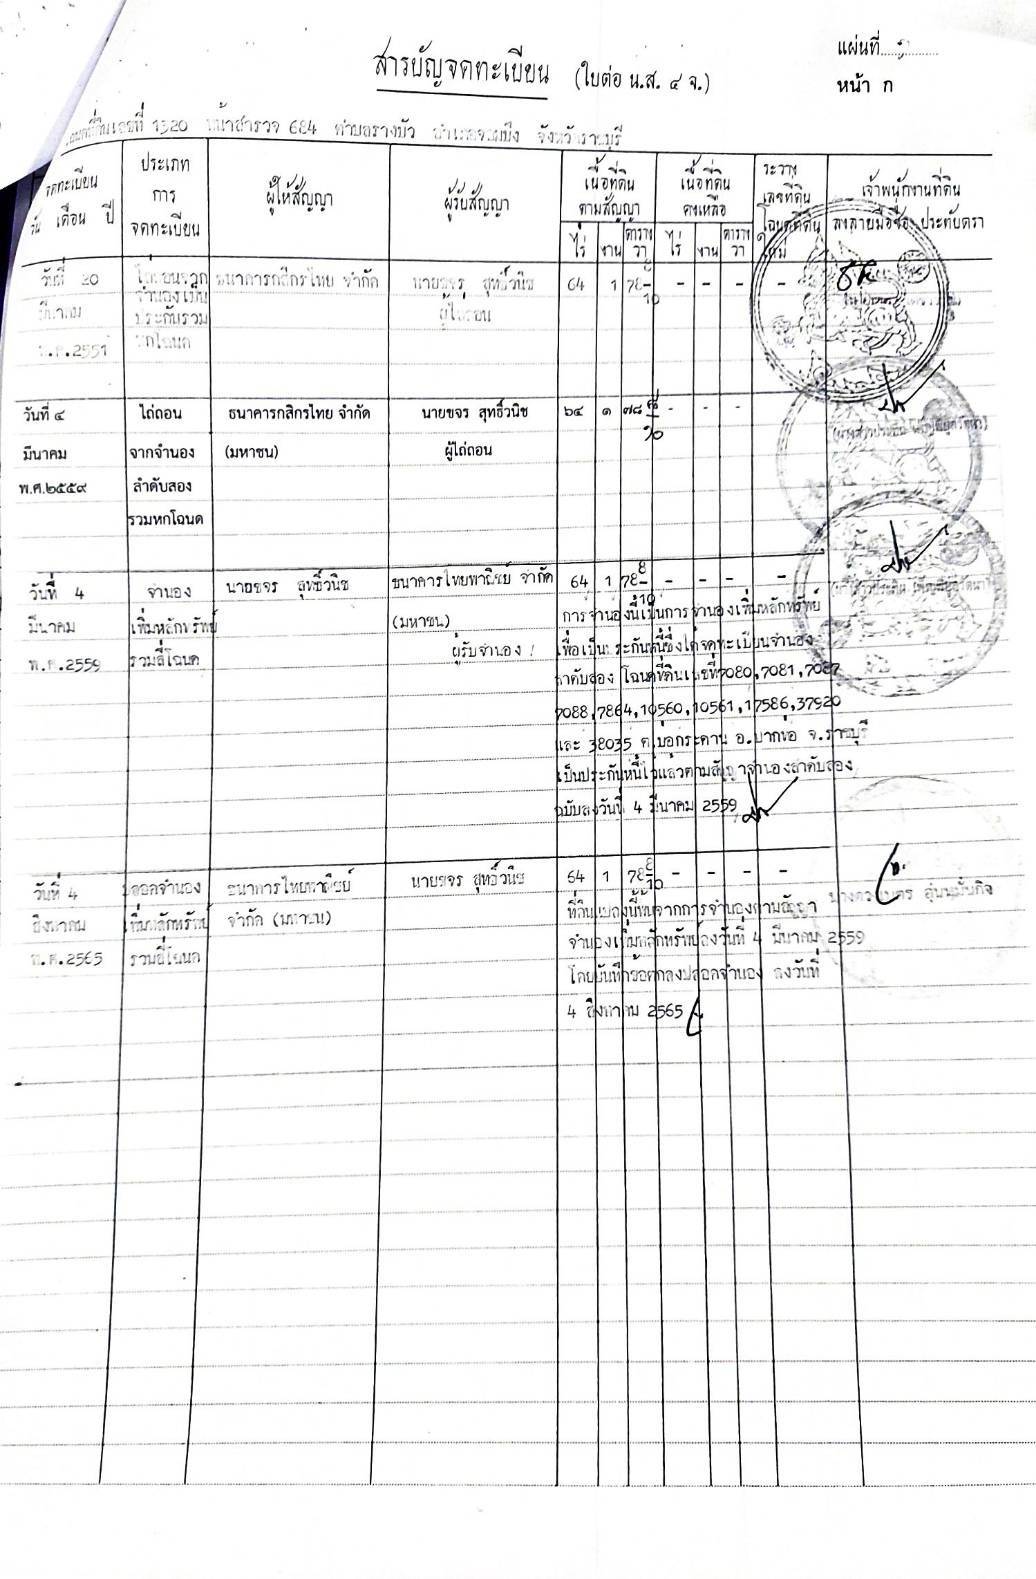 แผ่นที่
สารบัญจดทะเบียน (ใบต่อ น.ส. ๔ จ.)
หน้า ก
เลขที่ 1320 หน้าสำรวจ 684 ตำบลรางบัว อำเภอจอมบึง จังหวัดราชบุรี
จดทะเบียน
วัน เดือน ปี
ประเภท
การ
จดทะเบียน
ผู้ให้สัญญา
ผู้รับสัญญา
เนื้อที่ดิน
ตามสัญญา
ไร่ งาน ตาราง วา
เนื้อที่ดิน
คงเหลือ
ไร่ งาน ตาราง วา
ระวาง
เลขที่ดิน
โฉนดที่ดิน
ใหม่
เจ้าพนักงานที่ดิน
ลงลายมือชื่อ ประทับตรา
วันที่ 20 ไถ่ถอนจาก ธนาคารกสิกรไทย จำกัด นายขจร สุทธิ์วนิช 64 1 78 8/10 - - - -
มีนาคม จำนองเป็น ผู้ไถ่ถอน
พ.ศ.2551 ประกันรวม
หกโฉนด
วันที่ ๔ ไถ่ถอน ธนาคารกสิกรไทย จำกัด นายขจร สุทธิ์วนิช ๖๔ ๑ ๗๘ ๘/๑๐ - - -
มีนาคม จากจำนอง (มหาชน) ผู้ไถ่ถอน
พ.ศ.๒๕๕๙ ลำดับสอง
รวมหกโฉนด
วันที่ 4 จำนอง นายขจร สุทธิ์วนิช ธนาคารไทยพาณิชย์ จำกัด 64 1 78 8/10 - - - -
มีนาคม เพิ่มหลักทรัพย์ (มหาชน) การจำนองนี้เป็นการจำนองเพิ่มหลักทรัพย์
พ.ศ.2559 รวมสี่โฉนด ผู้รับจำนอง เพื่อเป็นประกันหนี้ซึ่งได้จดทะเบียนจำนอง
ลำดับสอง โฉนดที่ดินเลขที่ 7080,7081,7087
7088,7864,10560,10561,17586,37920
และ 38035 ต.บ่อกระดาน อ.ปากท่อ จ.ราชบุรี
เป็นประกันหนี้ไว้แล้วตามสัญญาจำนองลำดับสอง
ฉบับลงวันที่ 4 มีนาคม 2559
วันที่ 4 ปลอดจำนอง ธนาคารไทยพาณิชย์ นายขจร สุทธิ์วนิช 64 1 78 8/10 - - - -
สิงหาคม เพิ่มหลักทรัพย์ จำกัด (มหาชน) ที่ดินแปลงนี้พ้นจากการจำนองตามสัญญา อุ่นมั่นกิจ
พ.ศ.2565 รวมสี่โฉนด จำนองเพิ่มหลักทรัพย์ลงวันที่ 4 มีนาคม 2559
โดยบันทึกข้อตกลงปลอดจำนอง ลงวันที่
4 สิงหาคม 2565